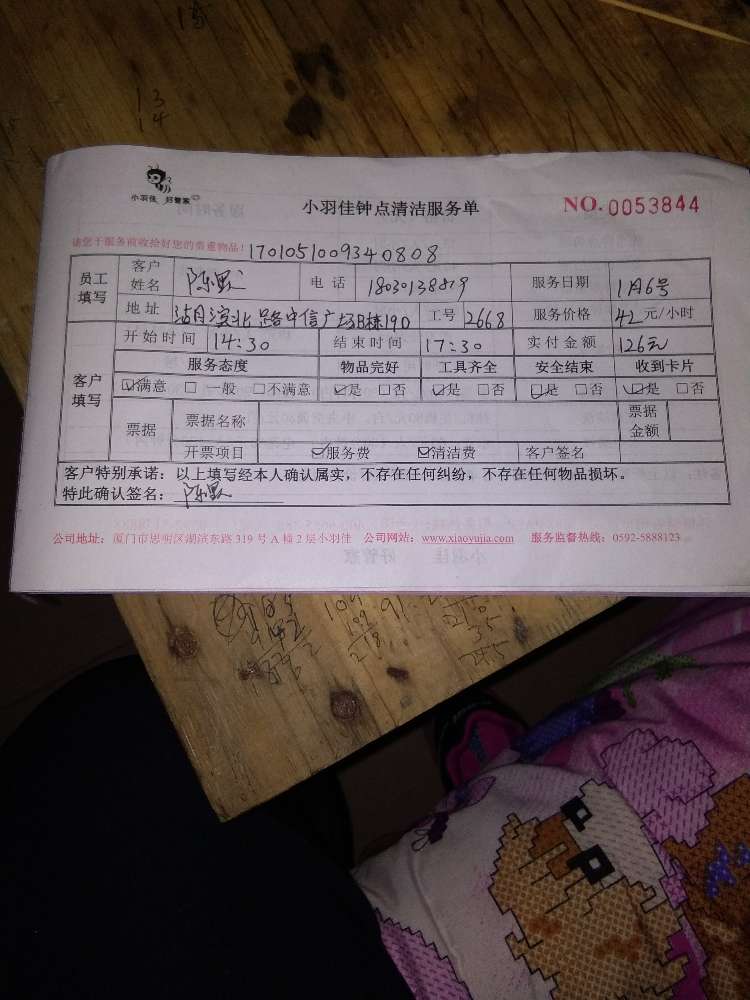 15
13
14
小羽佳 好管家
小羽佳钟点清洁服务单 NO. 0053844
请您于服务前收拾好您的贵重物品! 170105100934 0808
员工填写 客户姓名 陈默 电话 18030138819 服务日期 1月6号
地址 滨北路中信广场B栋19D 工号 2668 服务价格 42元/小时
客户填写 开始时间 14:30 结束时间 17:30 实付金额 126元
服务态度 物品完好 工具齐全 安全结束 收到卡片
☑满意 □一般 □不满意 ☑是 □否 ☑是 □否 ☑是 □否 ☑是 □否
票据 票据名称 票据金额
开票项目 ☑服务费 ☑清洁费 客户签名
客户特别承诺：以上填写经本人确认属实，不存在任何纠纷，不存在任何物品损坏。
特此确认签名：陈默
公司地址：厦门市思明区湖滨东路 319 号 A 幢 2 层小羽佳 公司网站：www.xiaoyujia.com 服务监督热线：0592-5888123
35
245